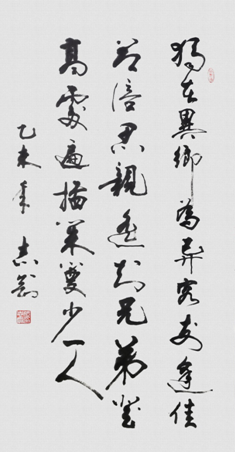 獨在異鄉為異客每逢佳
節倍思親遥知兄弟登
高處遍插茱萸少一人
乙未年